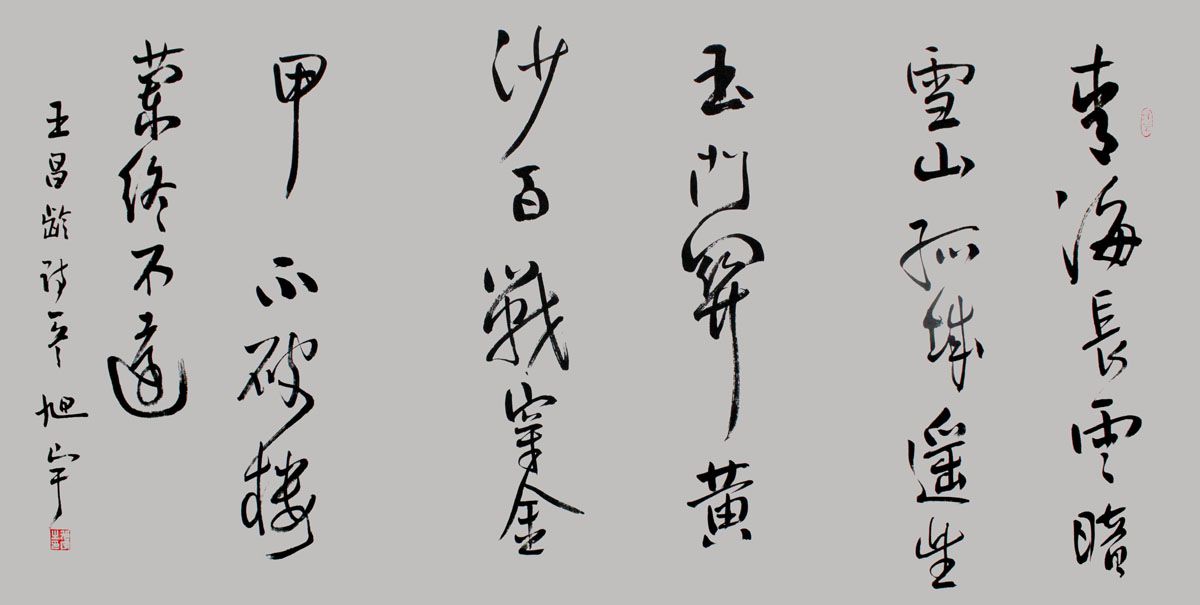 青海長雲暗
雪山孤城遥望
玉門關黄
沙百戰穿金
甲不破樓
蘭終不還
王昌齡詩一首 旭宇